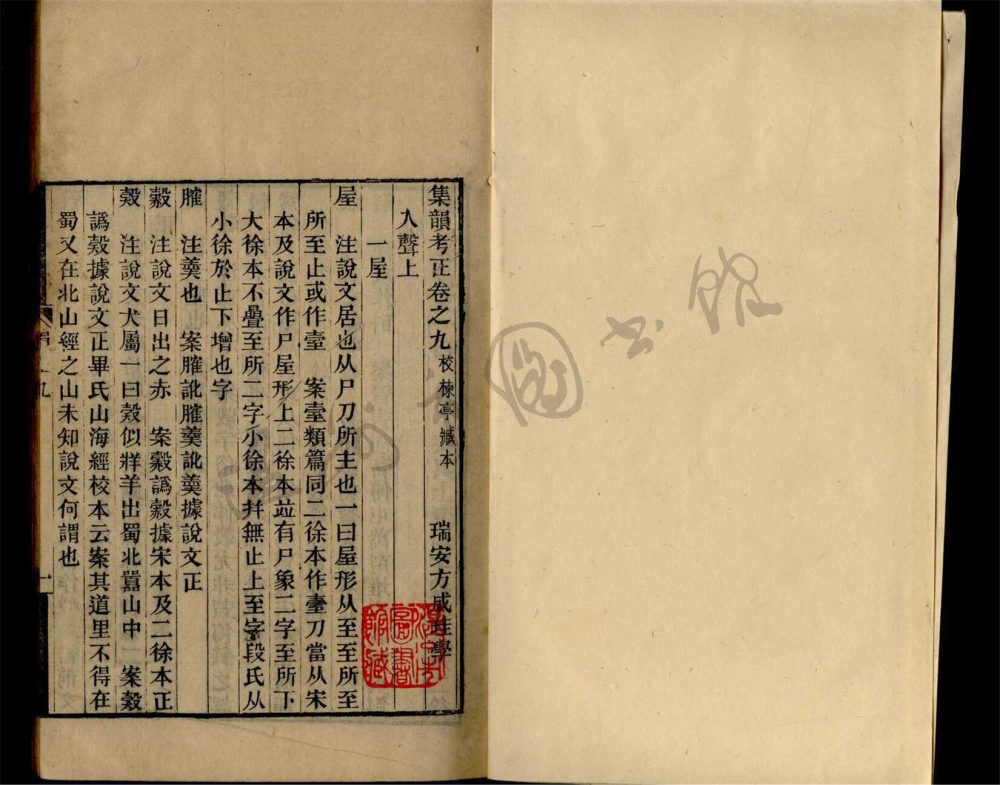 集韻考正卷之九 校楝亭臧本 瑞安方成珪學
入聲上
一屋
屋 注說文居也从尸刀所主也一曰屋形从至至所至
所至止或作臺 案臺類篇同二徐本作𦤿刀當从宋
本及說文作尸屋形上二徐本竝有尸象二字至所下
大徐本不疊至所二字小徐本幷無止上至字段氏从
小徐於止下增也字
臛 注羹也 案臛訛臛羹訛羹據說文正
縠 注說文日出之赤 案縠譌縠據宋本及二徐本正
㺉 注說文犬屬一曰㺉似牂羊出蜀北嚻山中 案㺉
譌㺉據說文正畢氏山海經校本云案其道里不得在
蜀又在北山經之山未知說文何謂也
九
一
溫州市圖書館藏
溫州市圖書館